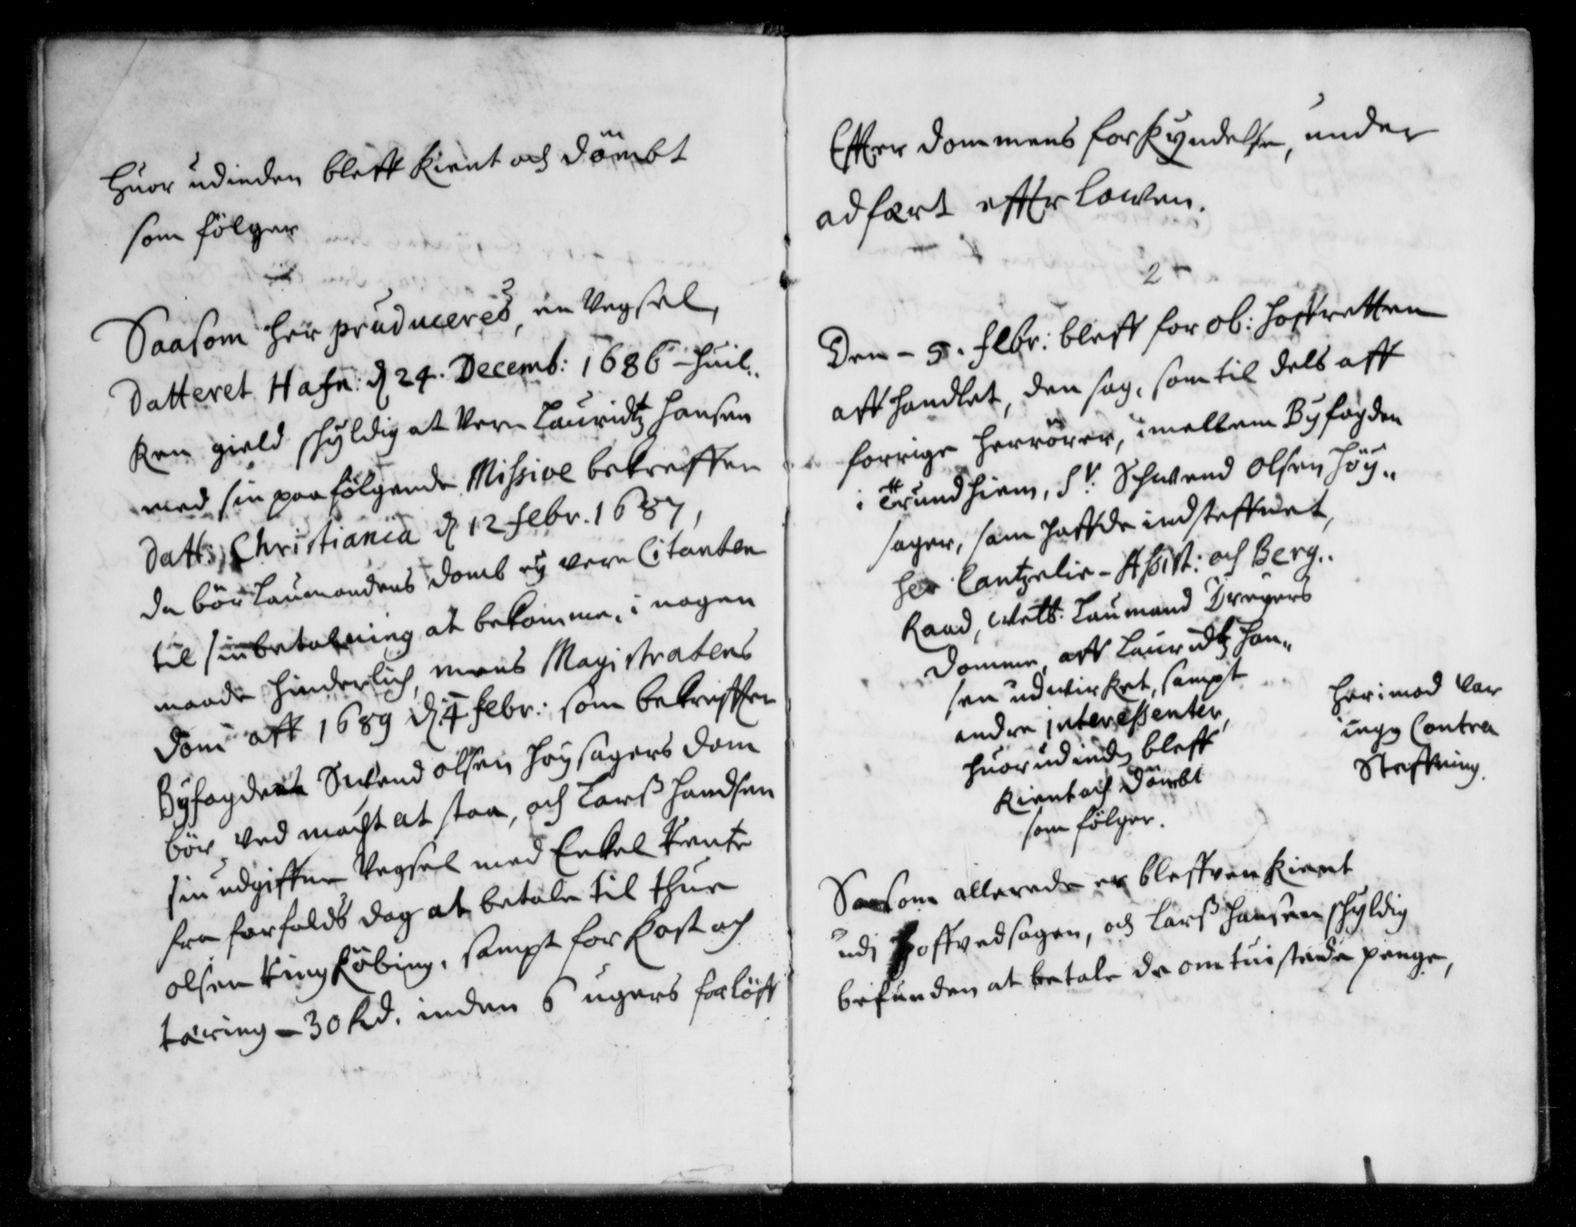 Huor udinden bleff kient och dömbt
som fölger
Saasom her pruduceres, en Vegsel,
datteret Hafn: d 24. Decemb: 1686 - huil..
ken gield schyldig at vere Lauridtz Hansen
med sin paafölgende Missive bekreffter
datt: Christiania d 12 febr. 1687,
da bör Laumandens domb ey vere Citanten
til sin betalning at bekomme, i nogen
maade hinderlich, mens Magistratens
dom aff 1689 d 4 febr: som bekreffter
Byfogdens Svend olsen Höysagers dom
bör ved macht at staa, och Larss Handsen
sin udgiffne Vegsel med Enkel Rente
fra forfalds dag at betale til Thue
olsen Ringköbing, sampt for kost och
tæring - 30 Rd. inden 6 ugers forlöff
Effter dommens forkyndelse, under
adfært effter lowen.
2
Den - 5. febr: bleff for ob: hoffretten
aff handlet, den sag, som til dels aff
forrige herrörer, imellem Byfogden
i Trundhiem, Sr: Schwend olsen Höy..
sager, som haffde indsteffnet,
her Cantzelie - Assist: och Berg..
Raad, Laumand Dreyers
domme, aff Lauridtz Han..
sen udwirket, sampt
andre interessenter,
huorudinden bleff
kient och dömbt
som fölger.
herimod var
ingen Contra
Steffning.
Saasom allerede er bleffven kient
udj hoffvedsagen, och Larss Hansen schyldig
befunden at betale de omtuistende penge,